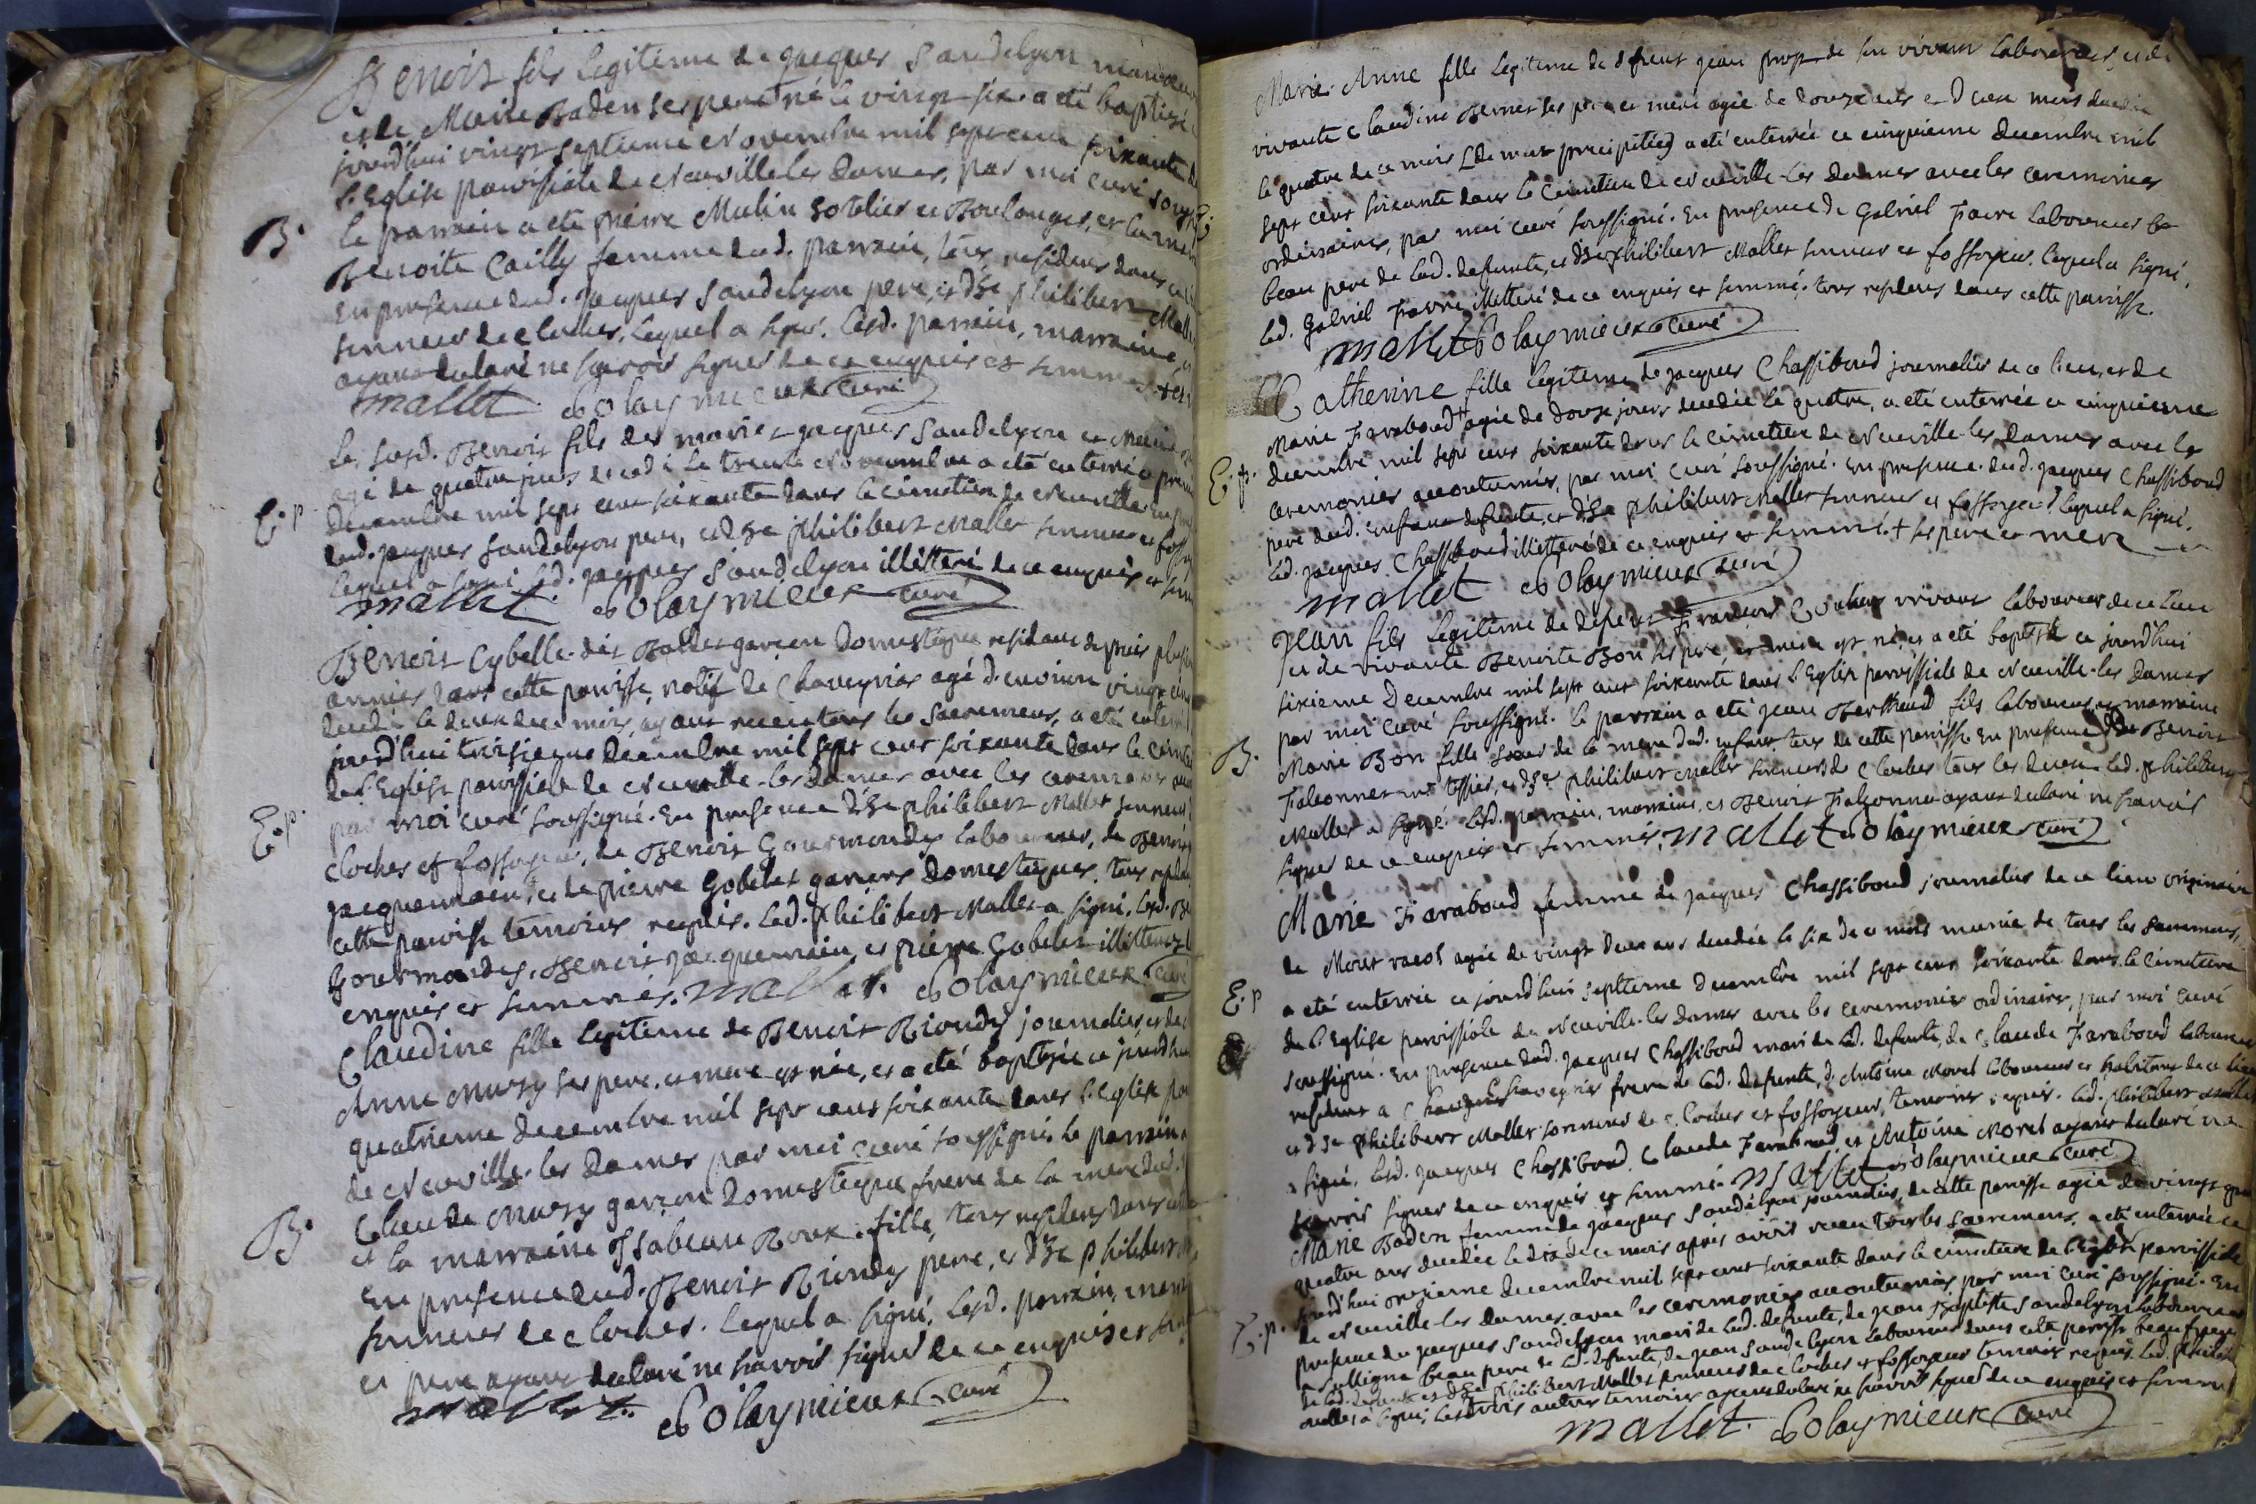 Benoit fils legitime de jacques Sandelyon manoeuv
et de Marie Baden ses pere né le vingt six a eté baptizé
jourd'hui vingt septieme Novembre mil sept cent soixante
l'Eglise paroissiale de Neuville les Dames, par moi curé souss
B. le parrain a eté pierre Mulin hotelier et Boulanger, et la mar
Benoite Cailly femme dud. parrain, tous residens dans
en presence dud. jacques Sandelyon pere, et d'he philibert Mall
sonneur de cloches, lequel a signé. lesd. parrain, marraine, et
ayant declaré ne sçavoir signer de ce enquis et sommés
mallet Polaymieux curé
le susd. Benoit fils des mariés jacques Sandelyon et Marie
agé de quatre jours decedé le trente Novembre a eté enterré premi
E.p. Decembre mil sept cent soixante dans le cimetiere de Neuville En
dud. jacques Sandelyon pere, et d'he philibert Mallet sonneur et foss
lequel a signé led. jacques Sandelyon illitteré de ce enquis et som
mallet Polaymieux curé
Benoit Cybelle dit garcon Domestique residant depuis plusie
années dans cette paroisse, natif de Chaveyriat agé d'environ vingt
decedé le deux de ce mois, ayant receu tous les sacremens, a eté enter
jourd'hui troisieme Decembre mil sept cent soixante dans le cimet
de l'Eglise paroissiale de Neuville-les Dames avec les ceremonies
E.p. par moi curé soussigné. En presence d'he philibert Mallet sonneur
cloches et fossoyeur, de Benoit Gourmondy laboureur, de Benoit
jacquemain, et de pierre Gobelet garcons Domestiques, tous
cette paroisse temoins requis. led. philibert Mallet a signé. lesd. Be
Gourmondy, Benoit jacquemain, et pierre Gobelet illitterés
enquis et sommés. mallet Polaymieux curé
Claudine fille legitime de Benoit Riondy journalier, et de
Anne Muzy ses pere, et mere est née, et a eté baptizée ce jourd'hui
quatrieme decembre mil sept cent soixante dans l'Eglise pa
de Neuville-les Dames par moi curé soussigné. le parrain
B. Claude Muzy garcon Domestique frere de la mere dud.
et la marraine Ysabeau Roux fille, tous residens dans
En presence dud. Benoit Riondy pere, et d'he philibert
sonneur de cloches. lequel a signé. lesd. parrain, marr
et pere ayant declaré ne sçavoir signer de ce enquis et som
mallet Polaymieux curé
Marie-Anne fille legitime de defunt jean prost de son vivant laboureur, et de
vivante Claudine Bernet ses pere et mere agée de douze ans et deux mois decedée
le quatre de ce mois (de mort precipitée) a eté enterrée ce cinquieme decembre mil
sept cent soixante dans le Cimetiere de Neuville-les Dames avec les ceremonies
ordinaires, par moi curé soussigné. En presence de Gabriel Favre laboureur
beau pere de lad. defunte, et d'he philibert Mallet sonneur et fossoyeur, lequel a signé,
led. Gabriel Favre illitteré de ce enquis et sommé; tous residens dans cette paroisse.
mallet Polaymieux curé
Catherine fille legitime de jacques Chassiboud journalier de ce lieu, et de
Marie Faraboud + agée de douze jours decedée le quatre, a eté enterrée ce cinquieme
E.p. decembre mil sept cent soixante dans le cimetiere de Neuville-les Dames avec les
ceremonies accoutumées, par moi Curé soussigné. En presence dud. jacques Chassiboud
pere dud. enfant defunte, et d'he philibert Mallet sonneur et fossoyeur lequel a signé.
led. jacques Chassiboud illitteré de ce enquis et sommé. + ses pere et mere
mallet Polaymieux curé
Jean fils legitime de defunt Francois vivant laboureur de ce lieu
et de vivante Benoite Bon ses pere et mere est né, et a eté baptizé ce jourd'hui
sixieme Decembre mil sept cent soixante dans l'Eglise paroissiale de Neuville-les Dames
par moi curé soussigné. le parrain a eté jean Berthoud fils laboureur, et marraine
B. Marie Bon fille soeur de la mere dud. enfant, tous de cette paroisse En presence de Benoit
Falconnet me tessier, et d'he philibert Mallet sonneur de cloches led. philibert
Mallet a signé. lesd. parrain, marraine, et Benoit Falconnet ayant declaré ne sçavoir
signer de ce enquis et sommés. mallet Polaymieux curé
Marie Faraboud femme de jacques Chassiboud journalier de ce lieu originaire
de agée de vingt deux ans decedée le six de ce mois munie de tous les sacremens,
E.p a eté enterrée ce jourd'hui septieme decembre mil sept cent soixante dans le cimetiere
de l'Eglise paroissiale de Neuville-les Dames avec les ceremonies ordinaires, par moi curé
soussigné. En presence dud. jacques Chassiboud mari de lad. defunte, de Claude Faraboud laboureur
resident a Chaveyriat frere de lad. defunte, d'Antoine Morel laboureur et habitant de ce lieu
et d'he philibert Mallet sonneur de cloches et fossoyeur, temoins requis. led. philibert Mallet
a signé, lesd. jacques Chassiboud, Claude Faraboud, et Antoine Morel ayant declaré ne
sçavoir signer de ce enquis et sommé. mallet Polaymieux curé
Marie Baden femme de jacques Sandelyon journalier, de cette paroisse agée de vingt
quatre ans decedée le dix de ce mois aprés avoir receu tous les sacremens, a eté enterrée ce
jourd'hui onzieme decembre mil sept cent soixante dans le cimetiere de l'Eglise paroissiale
E.p. de Neuville-les Dames, avec les ceremonies accoutumées, par moi curé soussigné. En
presence de jacques Sandelyon mari de lad. defunte, de jean Baptiste Sandelyon laboureur
beau pere de lad. defunte, de jean Sandelyon laboureur dans cette paroisse beau frere
de lad. defunte et d'he philibert Mallet sonneur de cloches et fossoyeur temoins requis. led. philibert
Mallet a signé, les trois autres temoins ayant declaré ne sçavoir signer de ce enquis et sommés
mallet Polaymieux curé